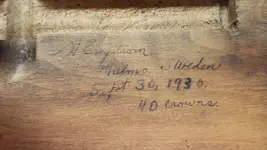 Malmo Sweden
Sept 30, 1930.
40 crowns.